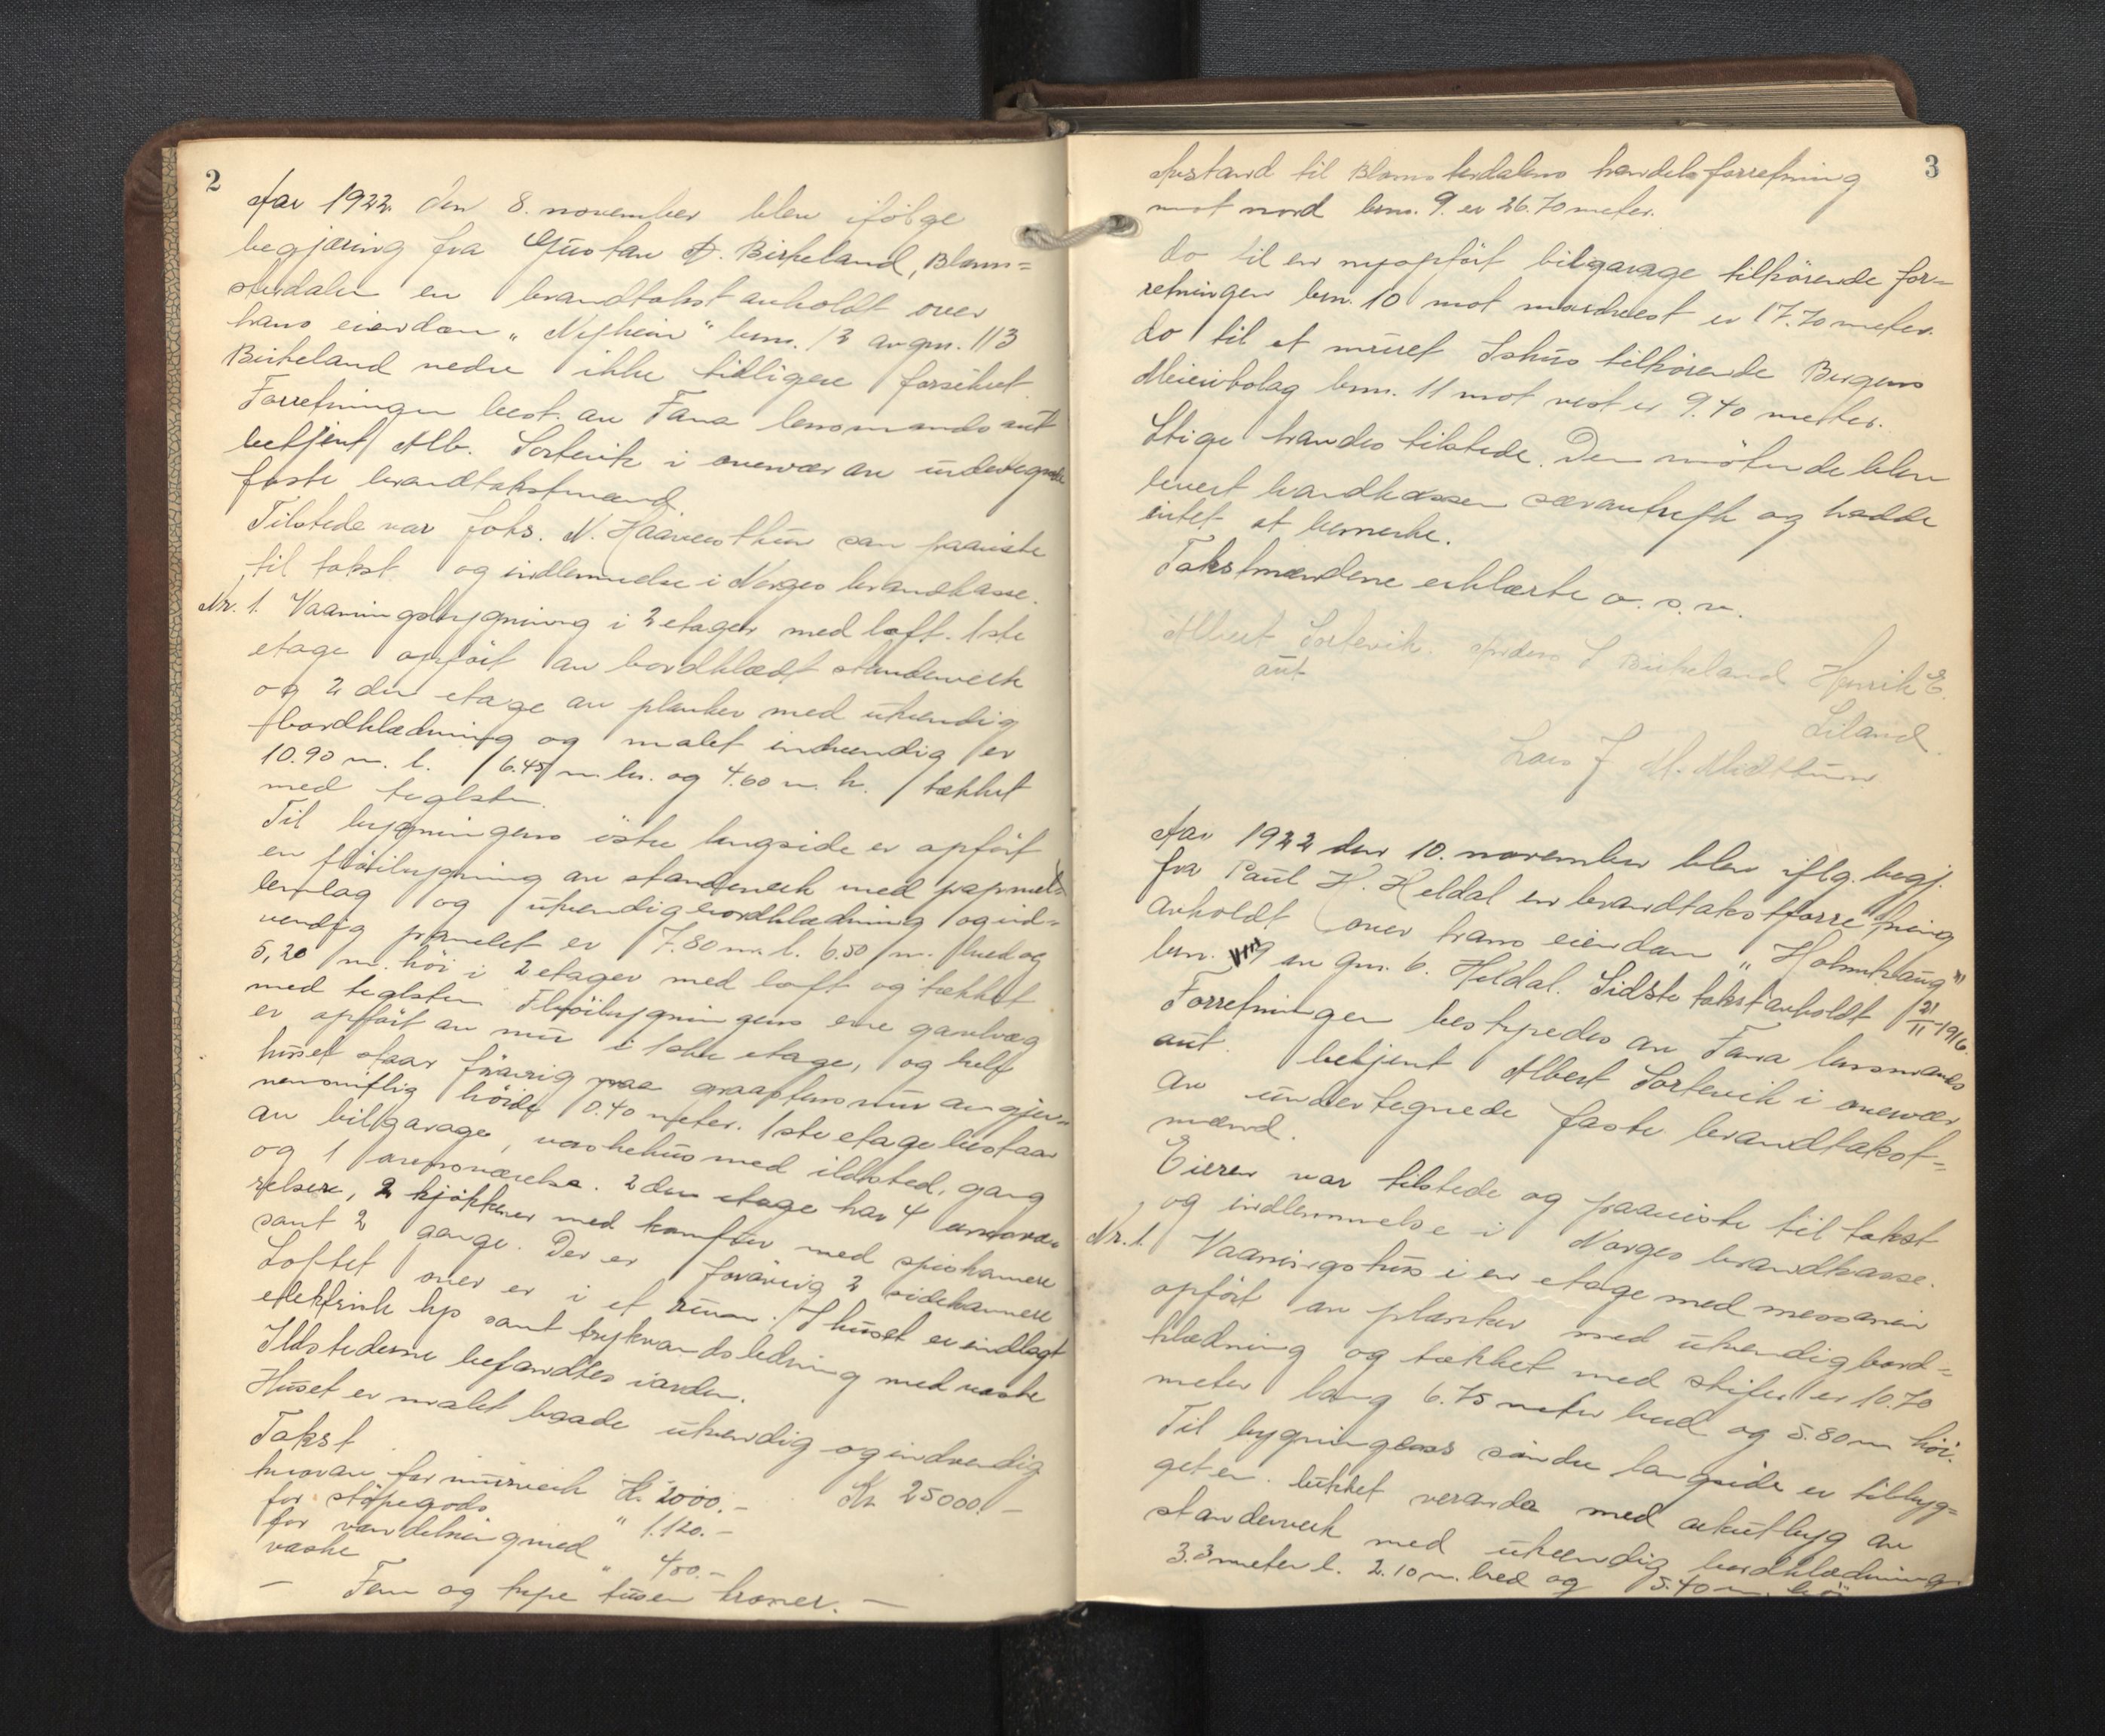 2
Aar 1922 den 8. november blev ifölge
begjæring fra Gustav A. Birkeland, Blom=
sterdalen en brandtakst avholdt over
hans eiendom „Nyheim“ brn. 12 av gnr. 113
Birkeland nedre ikke tidligere forsikret.
Forretningen best. av Fana lensmands aut
betjent Alb. Sortevik i overvær av undertegnede
faste brandtakstmænd.
Tilstede var Johs. N. Haavardstun som paaviste
til takst og indlemmelse i Norges brandkasse.
Nr. 1. Vaaningsbygning i 2 etager med loft. 1ste
etage opfört av bordklædt stenderverk
og 2 den etage av planker med utvendig
bordklædning og malet indvendig er
10.90 m. l. 6.45 m. br. og 4.60 m. h. tækket
med teglsten.
Til bygningens östre langside er opfört
en flöibygning av standerverk med papmel=
lemlag og utvendig bordklædning og ind=
vendig panelet er 7.80 m. l. 6.50 m. bred og
5,20 m. höi i 2 etager med loft og tækket
med teglsten. Flöibygningens ene gavlvæg
er opfört av mur i 1ste etage, og hele
huset staar forövrig paa graastensmur av gjen=
nemsnitlig höide 0.40 meter. 1ste etage bestaar
av bilgarage, vaskehus med ildsted, gang
og 1 arensværelse. 2 den etage har 4
relser, 2 kjökkener med komfur med spiskamere
samt 2 gange. Der er forövrig 2 sidekammere
Loftet over er i et rum. I huset er indlagt
elektrisk lys samt trykvandsledning med vaske
Ildstederne befandtes iorden.
Huset er malet baade utvendig og indvendig
Takst Kr. 25000.–
hvorav for murverk Kr. 2000.–
for stöpegods " 1.120.–
for vandledning med
vaske " 400.–
– Fem og tyve tusen kroner. –
3
Avstand til Blomsterdalens handelsforretning
mot nord brn. 9. er 26.70 meter.
do til en nyopfört bilgarage tilhörende for=
retningen brn. 10 mot nordvest er 17.70 meter.
do til et muret Ishus tilhörende Bergens
Meieribolag brn. 11 mot vest er 9.40 meter.
Stige fandtes tilstede. Den mötende blev
levert brandkassen særavtryk og hadde
intet at bemerke.
Takstmændene erklærte o. s. v.
Albert Sortevik. Anders L Birkeland Henrik E.
aut Liland.
Lars J M. Midttun.
Aar 1922 den 10. november blev iflg. begj.
fra Paul H. Heldal en brandtakstforretning
avholdt over hans eiendom „Holmhaug“
brn. 9 av gnr. 6. Heldal. Sidste takst avholdt 21/11-1916.
Forretningen bestyredes av Fana lensmands
aut. betjent Albert Sortevik i overvær
av undertegnede faste brandtakst=
mænd.
Eieren var tilstede og paaviste til takst
og indlemmelse i Norges brandkasse.
Nr. 1. Vaaningshus i en etage med messanin
opfört av planker med utvendig bord=
klædning og tækket med skifer er 10.70
meter lang 6.75 meter bred og 5.80 m höi.
Til bygningens söndre langside er tilbyg=
get en lukket veranda med arkutbyg av
standerverk med utvendig bordklædning
3.3 meter l. 2.10 m. bred og 5.40 m. höi